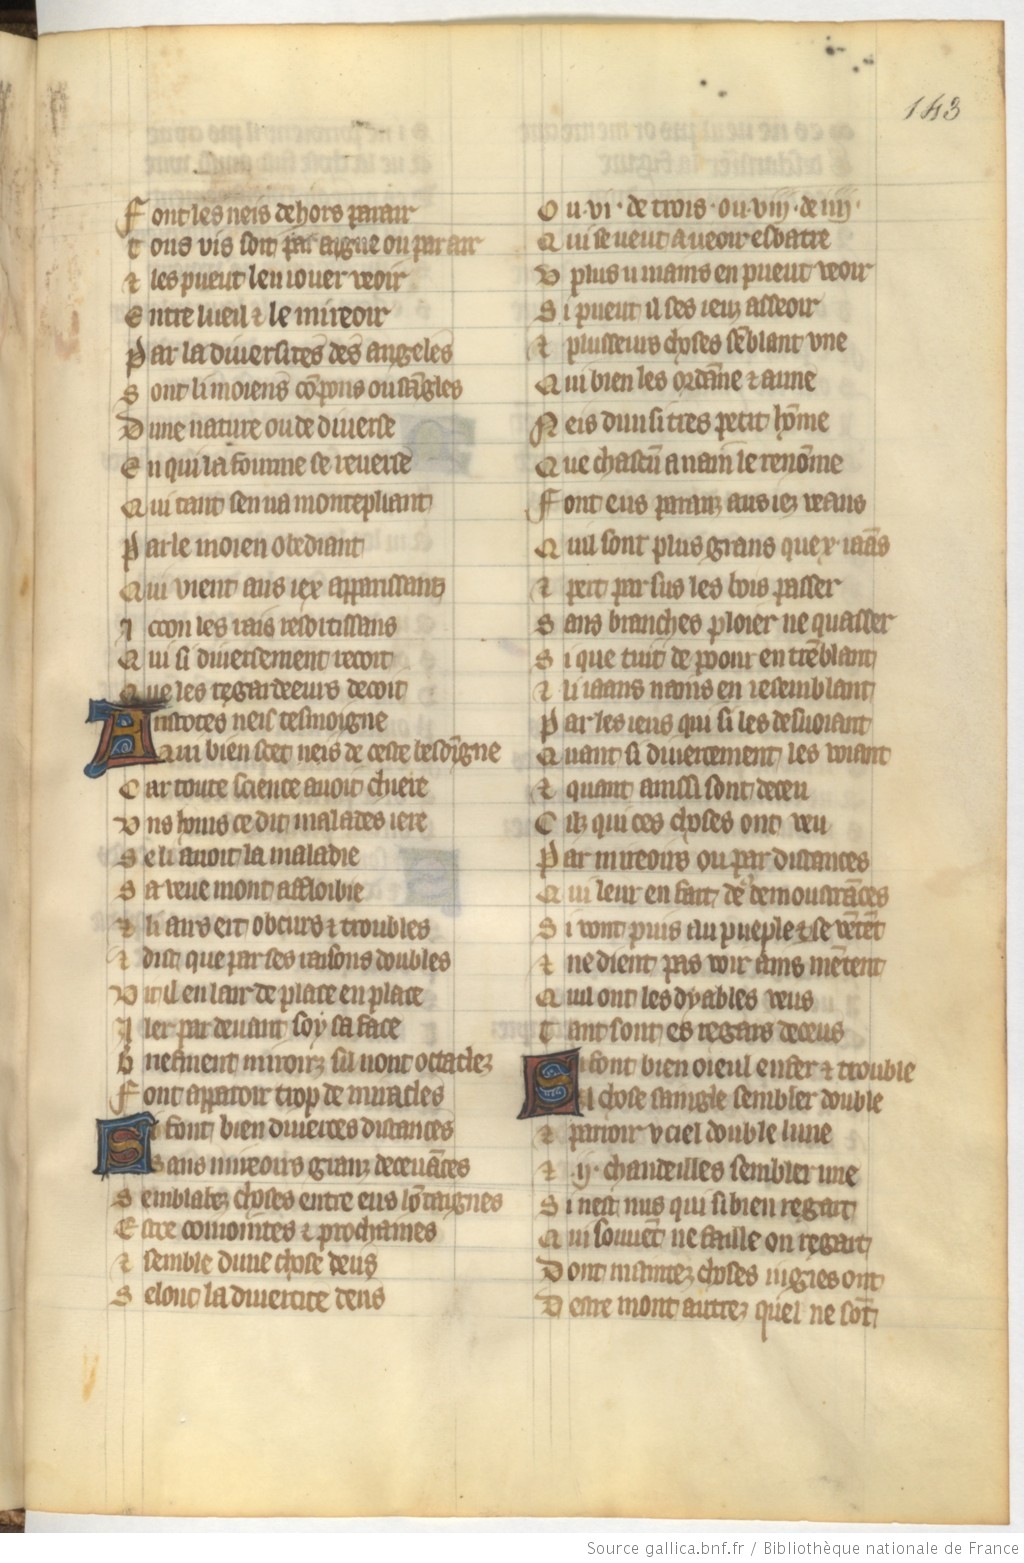 143
Font les neis dehors parair
Tous vis soit par aigue ou par air
⁊ les pueut len iouer veoir
Entre lueil ⁊ le mireoir
Par la diuersites des angeles
Sont li moiens cõpons ou sãngles
Dune nature ou de diuerse
En qui la fourme se reuerse
Qui tant sen ua montepliant
Par le moien obediant
Qui vient aus iex apparissans
Icon les rais resditissans
Qui si diuersement recoit
Que les regardeeurs decoit
Aristotes neis tesmoigne
Qui bien scet neis de ceste besõigne
Car toute science auoit chiere
Vns homs ce dit malades iere
Se li auoit la maladie
Sa veue mont affloibie
⁊ li airs ert obcurs ⁊ troubles
⁊ dist que par ces raisons doubles
Vit il en lair de place en place
Aler par deuant soy sa face
Briefment miroirz sil nont octaclez
Font apparoir trop de miracles
Si font bien diuerces distances
Sans mireoirs granz deceuãces
Semblablez choses entre eus lõtaignes
Estre comointes ⁊ prochaines
⁊ semble dune chose deus
Selonc la diuercite deus
Ou ·vi· de trois · ou ·viij· de iiij·
Qui se veut a veoir esbatre
V plus u mains en pueut veoir
Si pueut il ses ieuz asseoir
⁊ plusseurs choses sẽblant vne
Qui bien les ordẽne ⁊ aune
Neis dun si tres petit hõme
Que chascũ a nain le renõme
Font eus paranz aus iez veans
Quil sont plus grans que ·x· iaãs
⁊ pert par sus les bois passer
Sans branches ploier ne quasser
Si que tuit de poour en trẽblant
⁊ li iaans nains en resemblant
Par les ieus qui si les desuoiant
Quant si diuercement les voiant
⁊ quant ainssi sont deceu
Cilz qui ces choses ont veu
Par mireoirs ou par distances
Qui leur en fait de demoustrãces
Si vont puis au pueple ⁊ se vẽtẽt
⁊ ne dient pas voir ains mẽtent
Quil ont les dyables veus
Tant sont es regars deceus
Si font bien oieul enfer ⁊ trouble
Vl chose sangle sembler double
⁊ paroir v ciel double lune
⁊ ·ij· chandeilles sembler vne
Si nest nus qui si bien regart
Qui souuẽt ne faille on regart
Dont maintez choses iugies ont
Destre mont autrez quel ne sõt
Source gallica.bnf.fr / Bibliothèque nationale de France